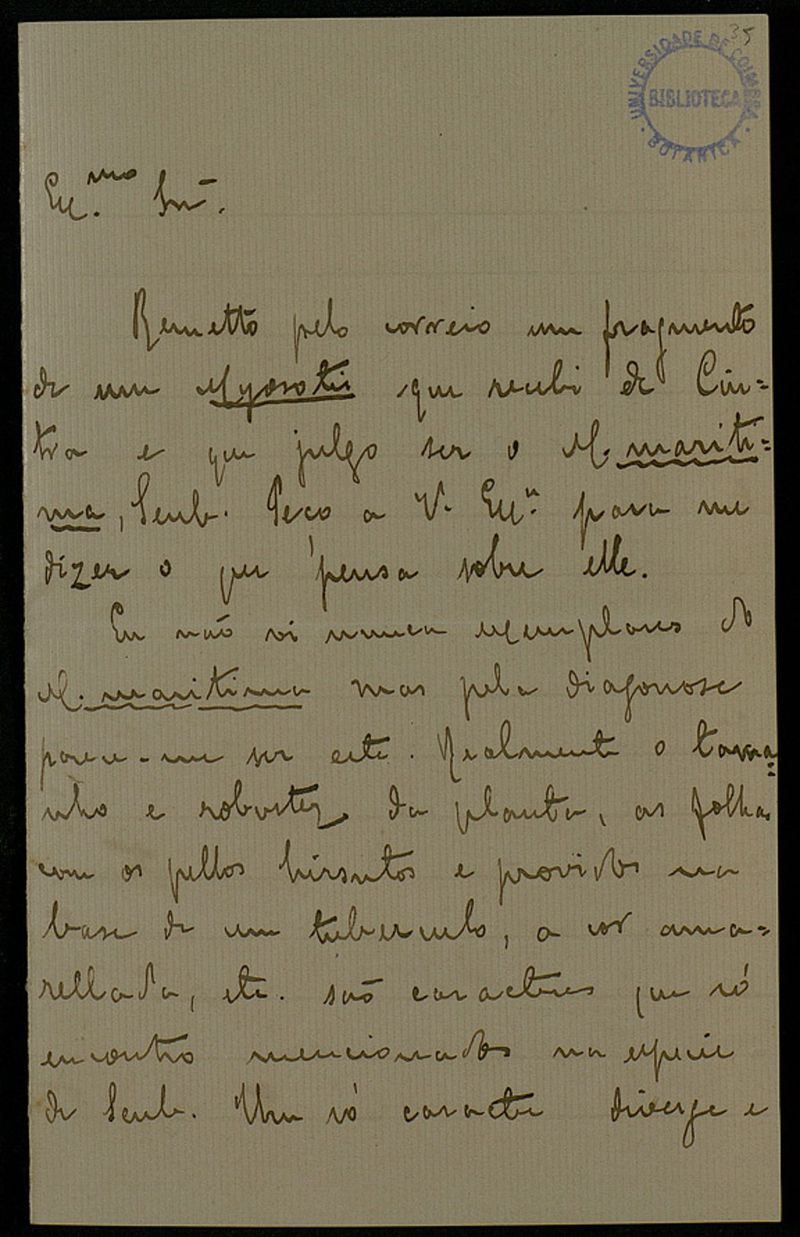 35
UNIVERSIDADE DE COIMBRA
BIBLIOTECA
BOTANICA
Exmo. Snr.
Remetto pelo correio um fragmento
de um Myosotis que recebi de Cin=
tra e que julgo ser o M. mariti=
ma, Seub. Peço a V. Exa. para me
dizer o que pensa sobre elle.
Eu não vi nunca exemplares do
M. maritima mas pela diagonose
parece-me ser este. Realmente o tama=
nho e robustez da planta, as folhas
com os pellos hirsutos e providos na
base de um tuberculo, a cor ama=
rellada, etc. são caracteres que só
encontro mencionados na especie
de Seub. Um só caracter diverge e